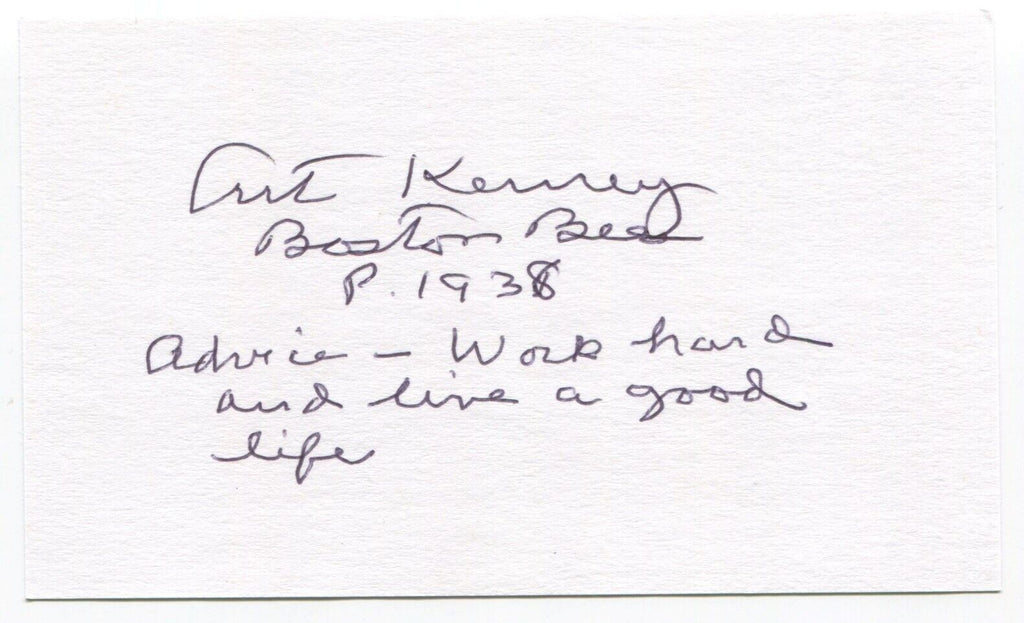 Art Kenney
Boston Bees
P. 1938
Advice - Work hard
and live a good
life